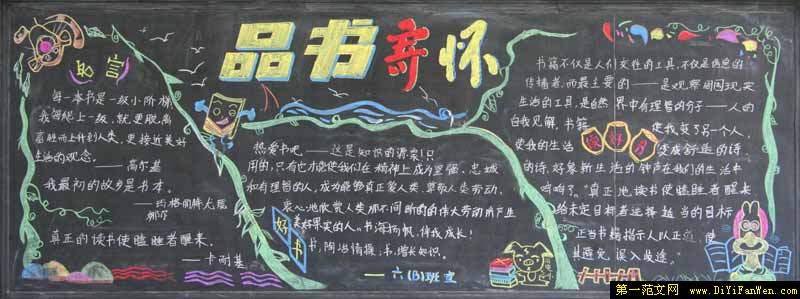 品书寄怀
名言
每一本书是一级小阶梯,
我每爬上一级,就更脱离
畜牲而上升到人类,更接近美好
生活的观念。
——高尔基
我最初的故乡是书本。
真正的读书使瞌睡者醒来。
——卡耐基
热爱书吧——这是知识的源泉!只
有用的,只有它才能使我们在精神上成为坚强、忠诚
和有理智的人,成为能够真正爱人类、尊敬人类劳动、
衷心地欣赏人类那不间断的伟大劳动所产生
美好果实的人。
书海扬帆,伴我成长!
好书,陶冶情操;书,增长知识。
好
卡
一六(B)班宣
书籍不仅是人们交往的工具,不仅是信息的
传播者,而最主要的——是观察周围现实
生活的工具,是自然界中有理智的分子——人的
自我见解。书籍
读好书
使我变了另一个人,
使我的生活
变成舒适的诗
的诗,好象新生活的钟声在我们的生活中
响响了。真正地读书使瞌睡者醒来
给未定目标者选择适当的目标
正当书籍指示人以正道,使
其避免误入歧途。
第一范文网
www.DiYiFanWen.com